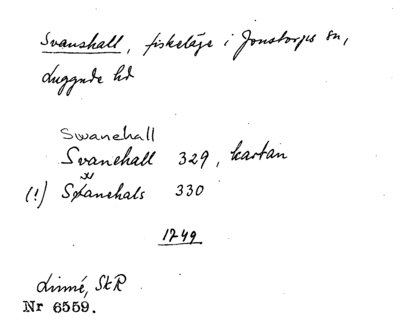 Svanshall, fiskeläge i Jonstorps sn,
Luggude hd
Swanehall
Svanehall 329, kartan
(!) Swanehals 330
1749
Linné, SkR
Nr 6559.